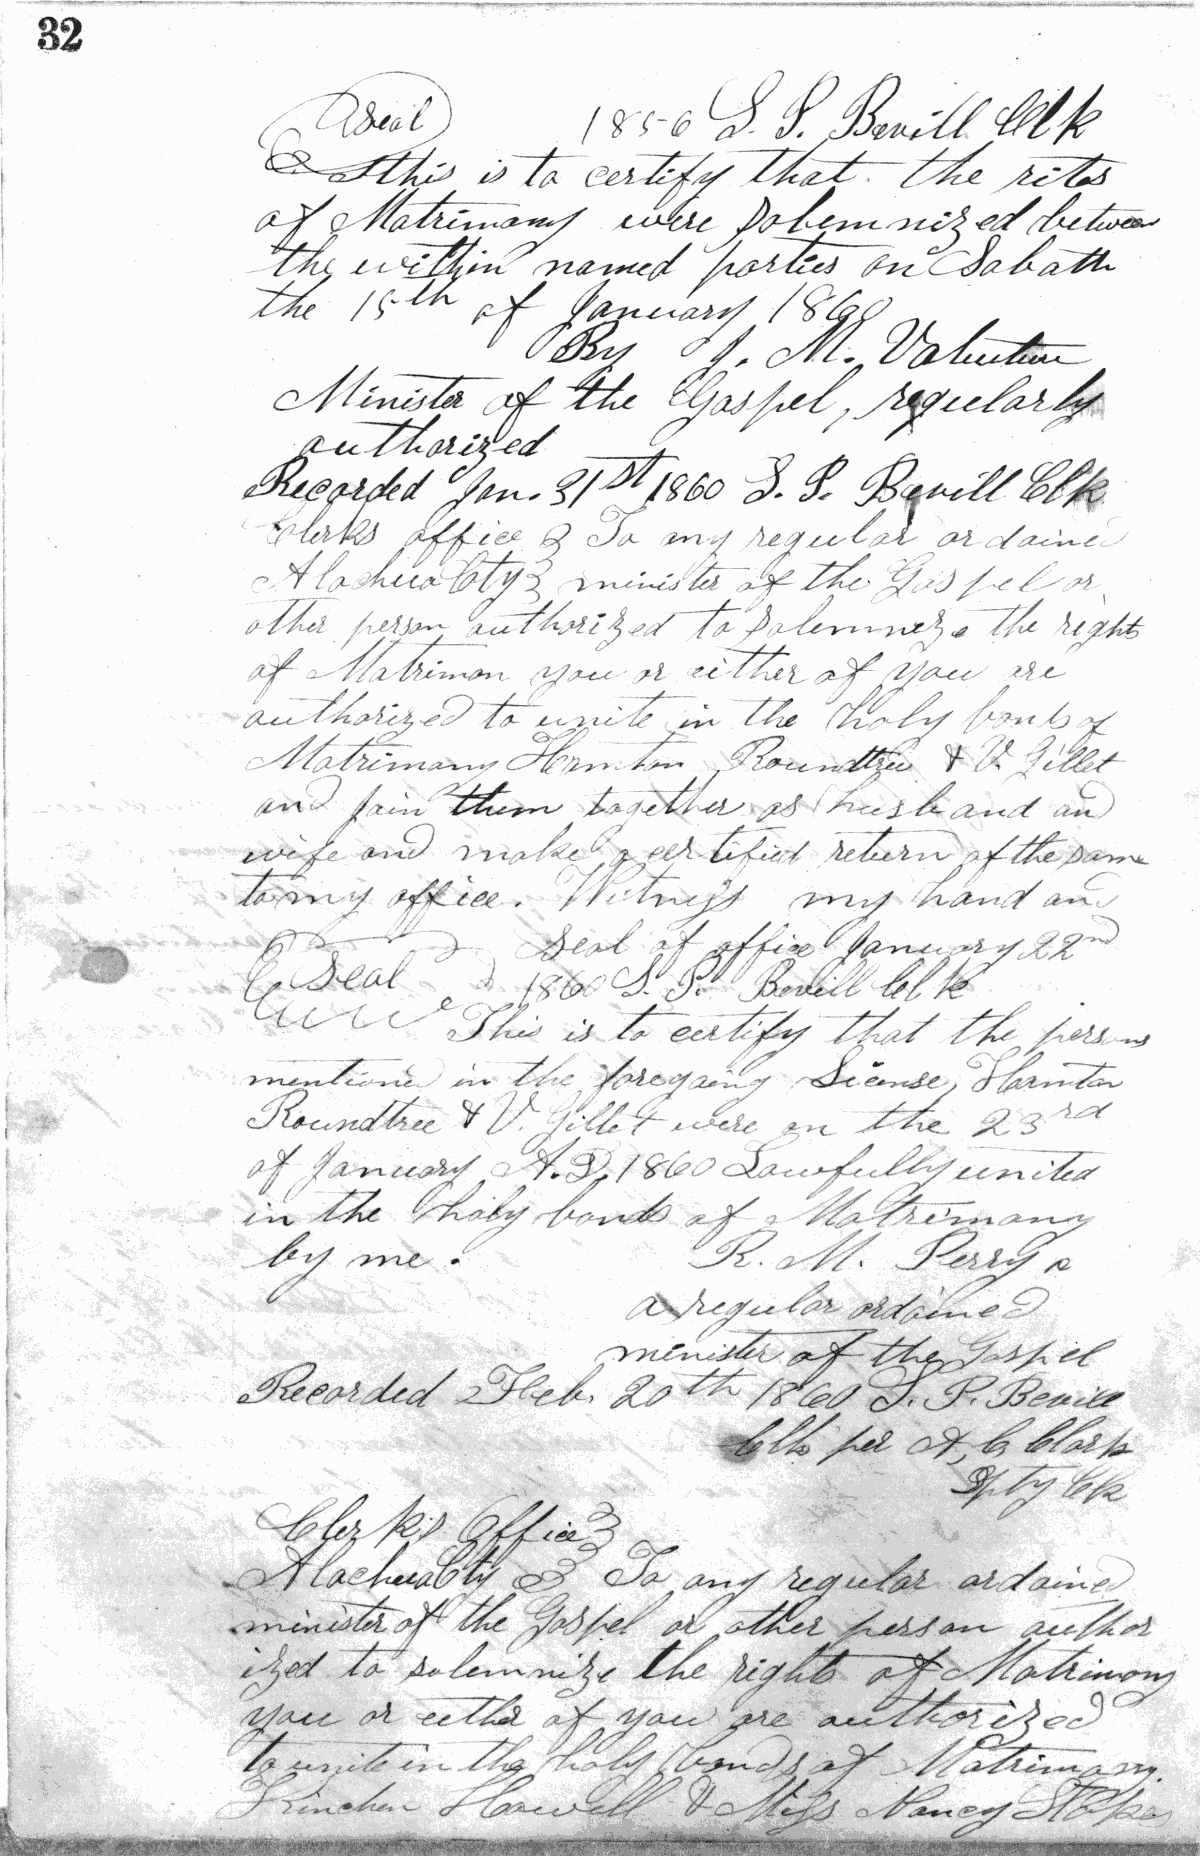 32
Seal 1856 S. P. Bevill Clk
This is to certify that the rites
of Matrimony were Solemnized between
the within named parties on Sabath
the 15th of January 1860
By J. M. Valentine
Minister of the Gospel, regularly
authorized
Recorded Jan. 31st 1860 S. P. Bevill Clk
Clerks office } To any regular ordained
Alachua Cty } minister of the Gospel or
other person authorized to Solemnize the rights
of Matrimon you or either of you are
authorized to unite in the holy bonds of
Matrimony Roundtree & V. Gillet
and join them together as husband and
wife and make a certified return of the same
to my office. Witness my hand and
Seal Seal of office January 22nd
1860 S. P. Bevill Clk
This is to certify that the persons
mentioned in the foregoing License,
Roundtree & V. Gillet were on the 23rd
of January A.D. 1860 Lawfully united
in the holy bonds of Matrimony
by me. R. M. Perry
a regular ordained
minister of the Gospel
Recorded Feb. 20th 1860 S. P. Bevill
Clk per A, C Clark
Dpty Clk
Clerk's Office }
Alachua Cty } To any regular ordained
minister of the Gospel or other person author
ized to solemnize the rights of Matrimony
you or either of you are authorized
to unite in the holy bonds of Matrimony
Kinchen Howell & Miss Nancy Stokes